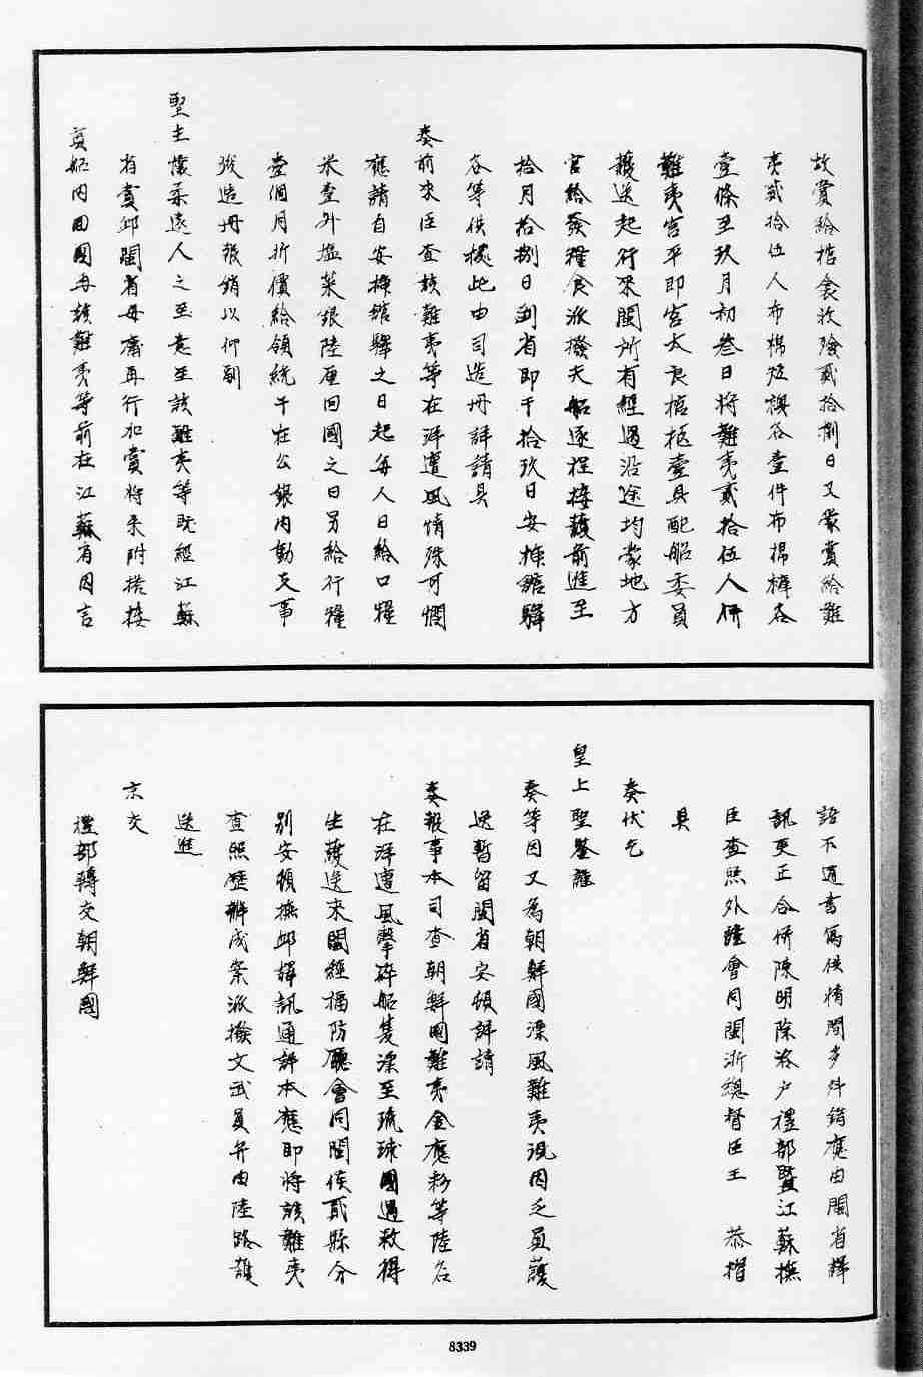 故賞給棺衾收殮貳拾捌日又蒙賞給難
夷貳拾伍人布棉短襖各壹件布棉褲各
壹條至玖月初叁日將難夷貳拾伍人併
難夷宮平即宮太良棺柩壹具配船委員
護送起行來閩所有經過沿途均蒙地方
官給發糧食派撥夫船逐程接護前進至
拾月拾捌日到省即于拾玖日安揷館驛
各等供據此由司造冊詳請具
奏前來臣查該難夷等在洋遭風情殊可憫
應請自安揷館驛之日起每人日給口糧
米壹升塩菜銀陸厘回國之日另給行糧
壹個月折價給領統于存公銀內動支事
竣造冊報銷以仰副
聖主懷柔遠人之至意至該難夷等既經江蘇
省賞邺閩省毋庸再行加賞將來附搭接
貢船內回國再該難夷等前在江蘇省因言
語不通書寫供情間多舛錯應由閩省譯
訊更正合併陳明除洛户禮部暨江蘇撫
臣查照外謹會同閩浙總督臣王 恭摺
具
奏伏乞
皇上聖鑒謹
奏等因又為朝鮮國漂風難夷現因乏員護
送暫留閩省安頓詳請
奏報事本司查朝鮮國難夷金應彩等陸名
在洋遭風擊碎船隻漂至琉球國遇救得
生護送來閩經福防廳會同閩侯貳縣分
別安頓撫邺譯訊通詳本應即將該難夷
查照歷辦成案派撥文武員弁由陸路護
送進
京交
禮部轉交朝鮮國
8339